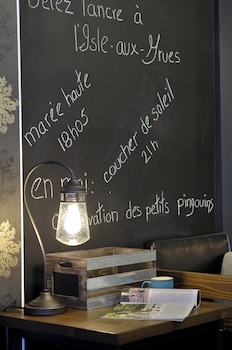 Jetez l'ancre à
l'Isle-aux-Grues
marée haute
18h05
coucher de soleil
21h
en mai:
des petits pingouins